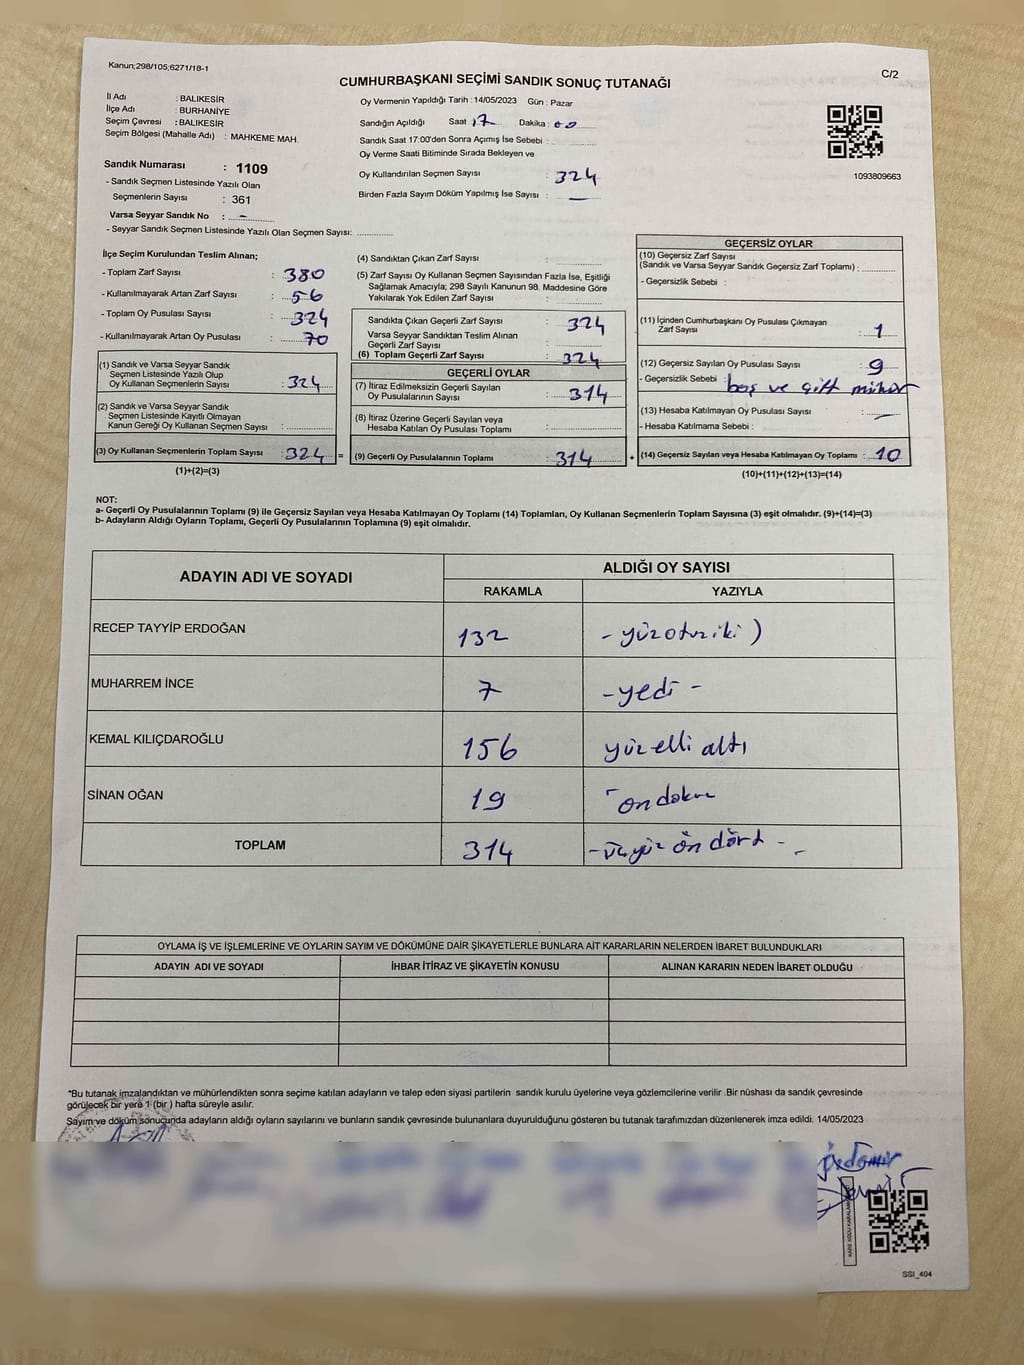 Kanun;298/105;6271/18-1
C/2
CUMHURBAŞKANI SEÇİMİ SANDIK SONUÇ TUTANAĞI
İl Adı : BALIKESİR
İlçe Adı : BURHANİYE
Seçim Çevresi : BALIKESİR
Seçim Bölgesi (Mahalle Adı) : MAHKEME MAH.
Sandık Numarası : 1109
- Sandık Seçmen Listesinde Yazılı Olan
Seçmenlerin Sayısı : 361
Varsa Seyyar Sandık No : –
- Seyyar Sandık Seçmen Listesinde Yazılı Olan Seçmen Sayısı: ............
Oy Vermenin Yapıldığı Tarih : 14/05/2023 Gün : Pazar
Sandığın Açıldığı Saat : 17 Dakika : 00
Sandık Saat 17:00'den Sonra Açımış İse Sebebi :
Oy Verme Saati Bitiminde Sırada Bekleyen ve
Oy Kullandırılan Seçmen Sayısı : 324
Birden Fazla Sayım Döküm Yapılmış İse Sayısı : —
1093809663
İlçe Seçim Kurulundan Teslim Alınan;
- Toplam Zarf Sayısı : 380
- Kullanılmayarak Artan Zarf Sayısı : 56
- Toplam Oy Pusulası Sayısı : 324
- Kullanılmayarak Artan Oy Pusulası : 70
(1) Sandık ve Varsa Seyyar Sandık
Seçmen Listesinde Yazılı Olup
Oy Kullanan Seçmenlerin Sayısı : 324
(2) Sandık ve Varsa Seyyar Sandık
Seçmen Listesinde Kayıtlı Olmayan
Kanun Gereği Oy Kullanan Seçmen Sayısı :
(3) Oy Kullanan Seçmenlerin Toplam Sayısı : 324 =
(1)+(2)=(3)
(4) Sandıktan Çıkan Zarf Sayısı :
(5) Zarf Sayısı Oy Kullanan Seçmen Sayısından Fazla İse, Eşitliği
Sağlamak Amacıyla; 298 Sayılı Kanunun 98. Maddesine Göre
Yakılarak Yok Edilen Zarf Sayısı :
Sandıkta Çıkan Geçerli Zarf Sayısı : 324
Varsa Seyyar Sandıktan Teslim Alınan
Geçerli Zarf Sayısı :
(6) Toplam Geçerli Zarf Sayısı : 324
GEÇERLİ OYLAR
(7) İtiraz Edilmeksizin Geçerli Sayılan
Oy Pusulasının Sayısı : 314
(8) İtiraz Üzerine Geçerli Sayılan veya
Hesaba Katılan Oy Pusulası Toplamı :
(9) Geçerli Oy Pusulalarının Toplamı : 314 +
GEÇERSİZ OYLAR
(10) Geçersiz Zarf Sayısı
(Sandık ve Varsa Seyyar Sandık Geçersiz Zarf Toplamı) :
- Geçersizlik Sebebi :
(11) İçinden Cumhurbaşkanı Oy Pusulası Çıkmayan
Zarf Sayısı : 1
(12) Geçersiz Sayılan Oy Pusulası Sayısı : 9
- Geçersizlik Sebebi : boş ve çift mühür
(13) Hesaba Katılmayan Oy Pusulası Sayısı : —
- Hesaba Katılmama Sebebi :
(14) Geçersiz Sayılan veya Hesaba Katılmayan Oy Toplamı : 10
(10)+(11)+(12)+(13)=(14)
NOT:
a- Geçerli Oy Pusulalarının Toplamı (9) ile Geçersiz Sayılan veya Hesaba Katılmayan Oy Toplamı (14) Toplamları, Oy Kullanan Seçmenlerin Toplam Sayısına (3) eşit olmalıdır. (9)+(14)=(3)
b- Adayların Aldığı Oyların Toplamı, Geçerli Oy Pusulalarının Toplamına (9) eşit olmalıdır.
ADAYIN ADI VE SOYADI
ALDIĞI OY SAYISI
RAKAMLA YAZIYLA
RECEP TAYYİP ERDOĞAN 132 - yüzotuziki )
MUHARREM İNCE 7 - yedi -
KEMAL KILIÇDAROĞLU 156 yüzelli altı
SİNAN OĞAN 19 on dokuz
TOPLAM 314 - üçyüz on dört -
OYLAMA İŞ VE İŞLEMLERİNE VE OYLARIN SAYIM VE DÖKÜMÜNE DAİR ŞİKAYETLERLE BUNLARA AİT KARARLARIN NELERDEN İBARET BULUNDUKLARI
ADAYIN ADI VE SOYADI İHBAR İTİRAZ VE ŞİKAYETİN KONUSU ALINAN KARARIN NEDEN İBARET OLDUĞU
*Bu tutanak imzalandıktan ve mühürlendikten sonra seçime katılan adayların ve talep eden siyasi partilerin sandık kurulu üyelerine veya gözlemcilerine verilir .Bir nüshası da sandık çevresinde
görülecek bir yere 1 (bir ) hafta süreyle asılır.
Sayım ve döküm sonucunda adayların aldığı oyların sayılarını ve bunların sandık çevresinde bulunanlara duyurulduğunu gösteren bu tutanak tarafımızdan düzenlenerek imza edildi. 14/05/2023
SSI_404